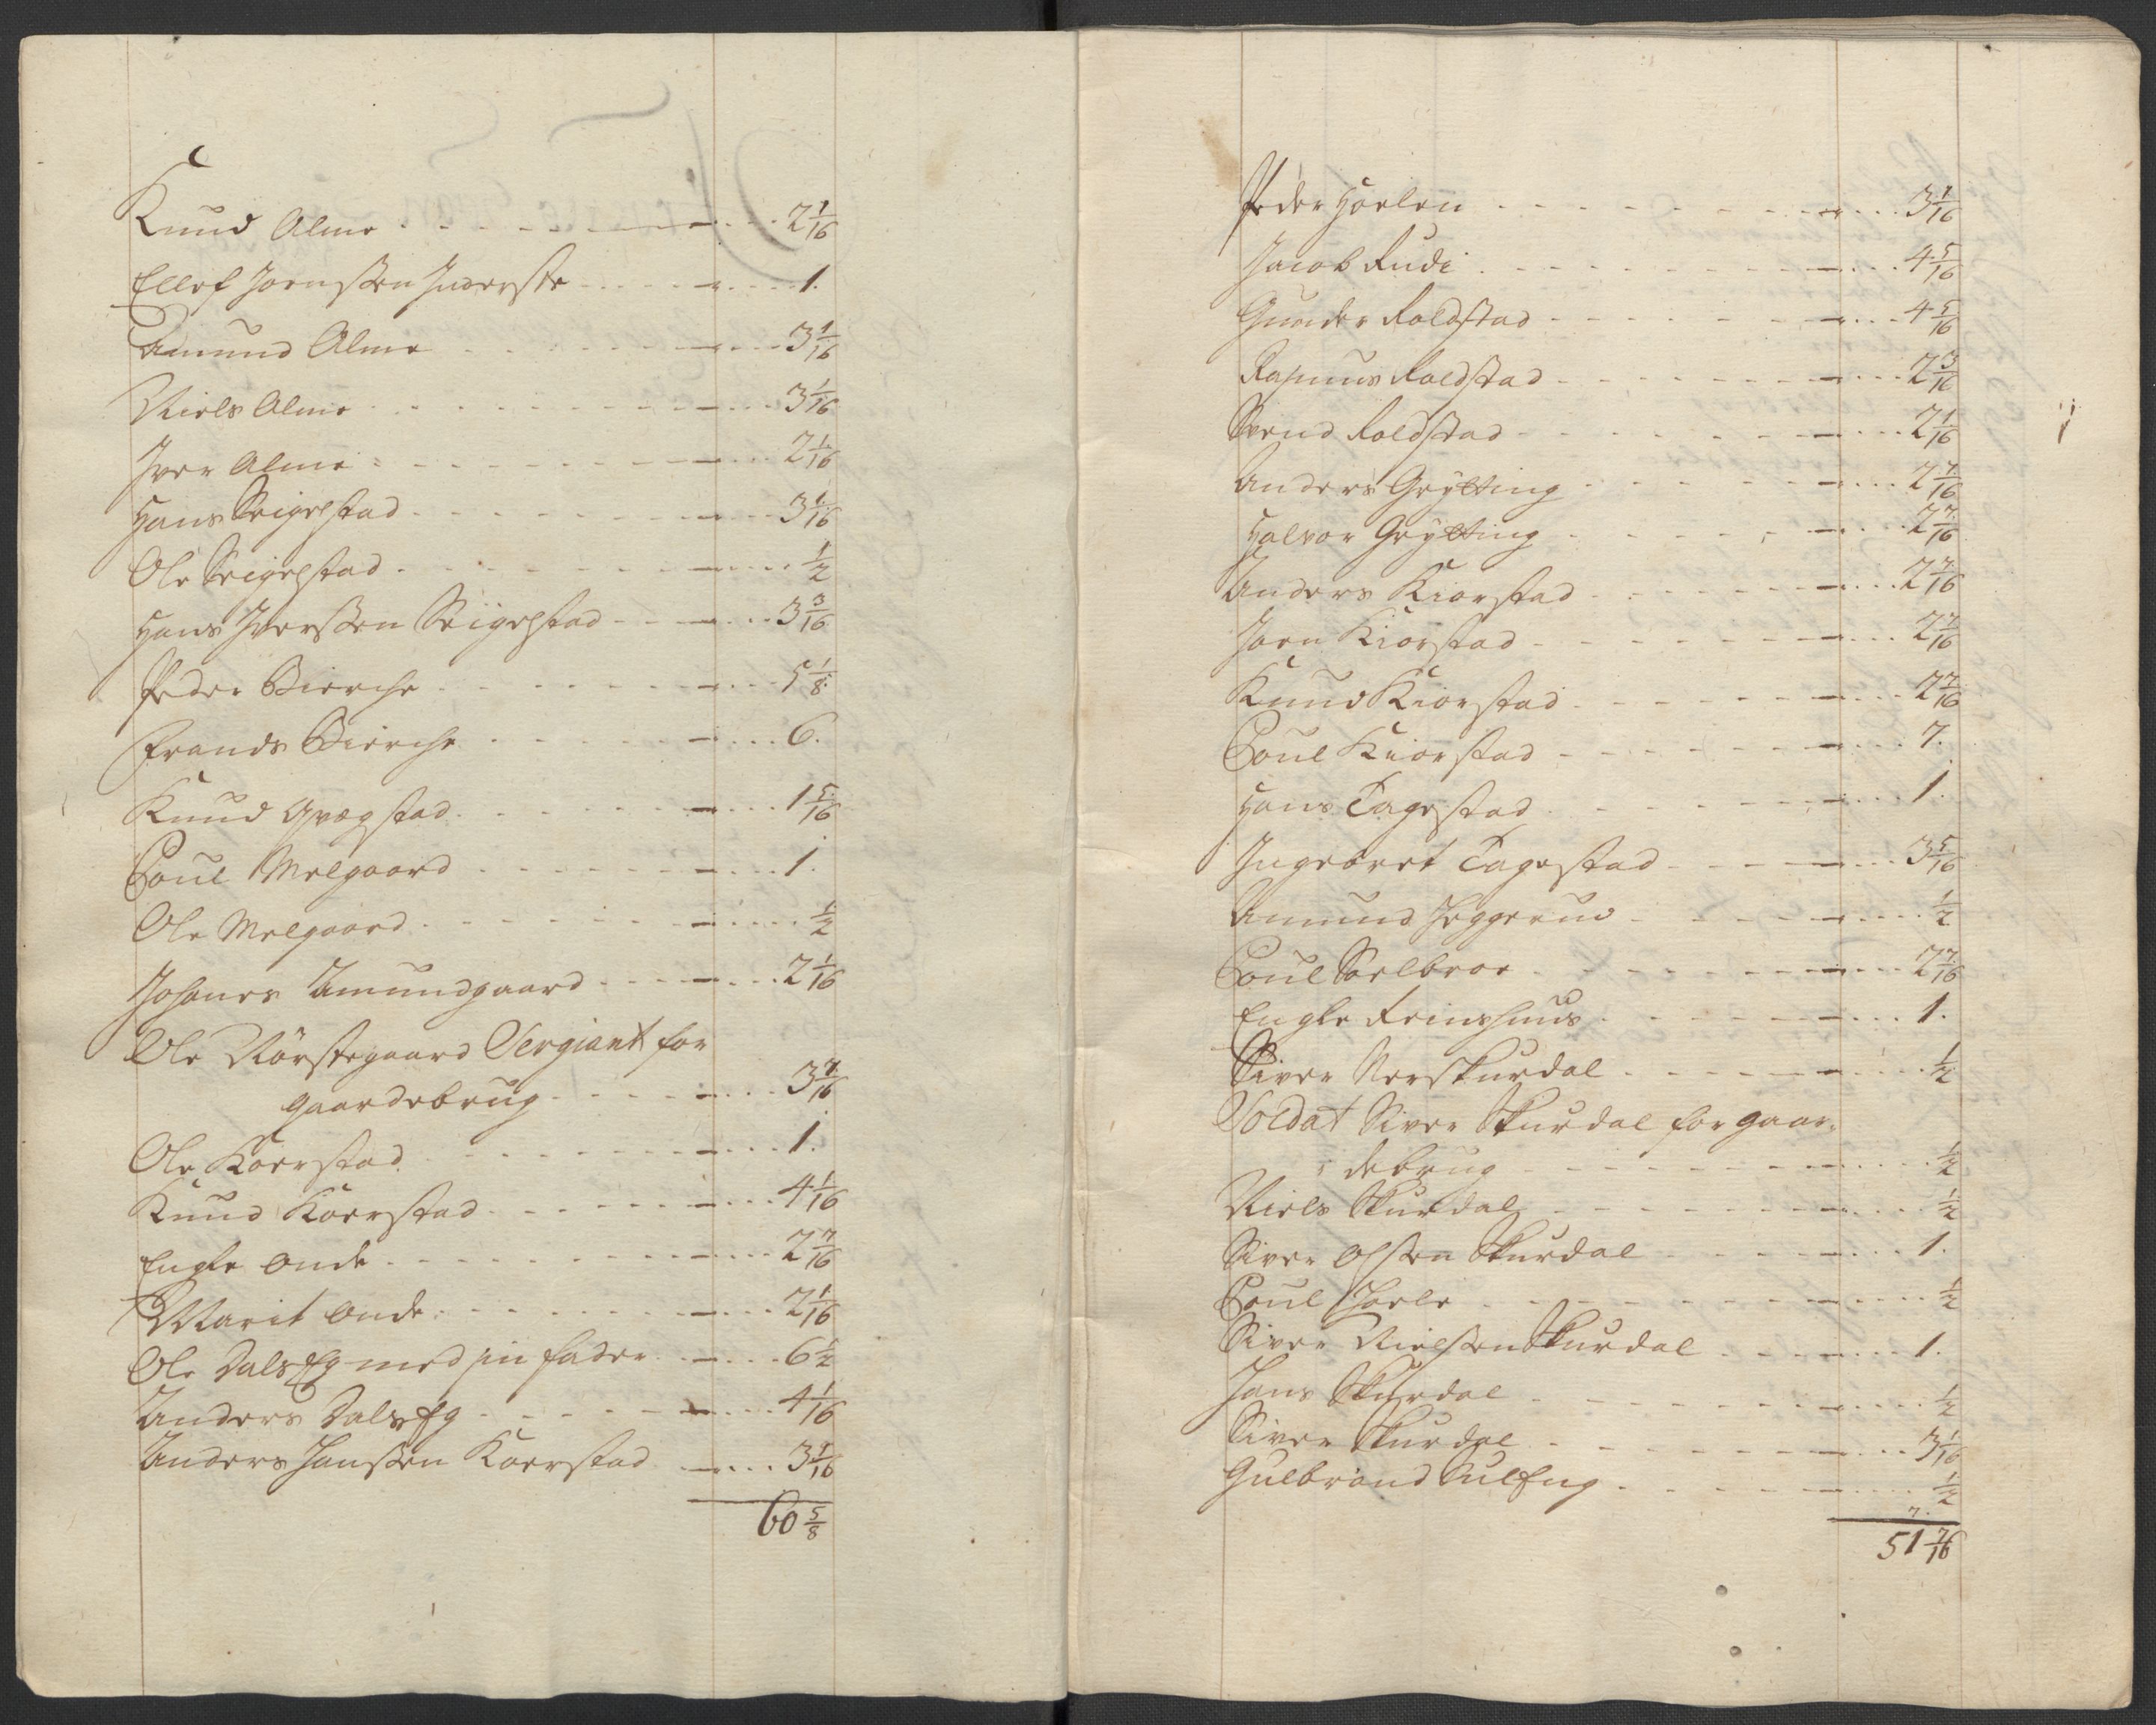 Knud Alme - - - - - - - - 2 1/16
Ellef Joenssen Inderste - - - - - 1.
Amund Alme - - - - - - 3 1/16
Niels Alme - - - - - - - 3 1/16
Iver Alme - - - - - - - 2 1/16
Hans Seigelstad - - - - - - 3 1/16
Ole Seigelstad - - - - - - 1/2
Hans Iverssen Seigelstad - - - - 3 3/16
Peder Bierche - - - - - - 5 1/8
Frands Bierche - - - - - - 6.
Knud Qvægstad - - - - - 1 5/16
Poul Melgaard - - - - - - 1.
Ole Melgaard - - - - - - 1/2
Johanes Amundgaard - - - - 2 1/16
Ole Nörstegaard Sergiant for
gaardebrug - - - - - 3 7/16
Ole Kaerstad - - - - - - 1.
Knud Kaerstad - - - - - 4 1/16
Engle Onde - - - - - - 2 7/16
Marit Onde - - - - - - 2 1/16
Ole Dalseg med sin fader - - - 6 1/2
Anders Dalseg - - - - - - 4 1/16
Anders Hanssen Kaerstad - - - 3 1/16
60 5/8
Peder Hoelen - - - - - - - 3 1/16
Jacob Rudi - - - - - - - 4 5/16
Gunder Roldstad - - - - - - 4 5/16
Rasmus Roldstad - - - - - - 2 3/16
Svend Roldstad - - - - - - 2 1/16
Anders Grytting - - - - - - 2 7/16
Halvor Grytting - - - - - - 2 7/16
Anders Kiorstad - - - - - - 2 7/16
Joen Kiorstad - - - - - - 2 7/16
Knud Kiorstad - - - - - - 2 7/16
Poul Kiorstad - - - - - - 7.
Hans Tagestad - - - - - - 1.
Ingebret Tagestad - - - - - 3 5/16
Amund Heggerud - - - - - 1/2
Poul Selbroe - - - - - - 2 7/16
Engle Reinshuus - - - - - 1.
Siver Nerskurdal - - - - - 1/2
Soldat Siver Skurdal for gaar-
debrug - - - - - - 1/2
Niels Skurdal - - - - - - 1/2
Siver Olsen Skurdal - - - - 1.
Poul Hoele - - - - - - - 1/2
Siver Nielssen Skurdal - - - 1.
Hans Skurdal - - - - - - 1/2
Siver Skurdal - - - - - - 3 1/16
Gulbrand Suleng - - - - - 1/2
51 7/16